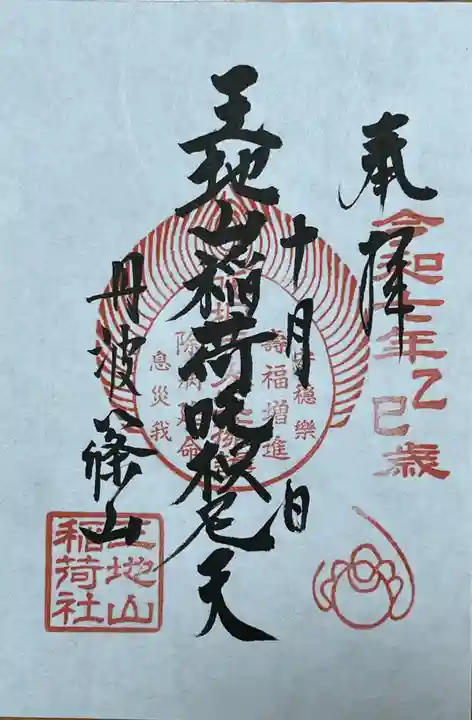 奉拝
令和七年乙巳歳
十月 日
王地山稲荷吒枳尼天
丹波篠山
安穏樂
壽福増進
息災我
王地山
稲荷社